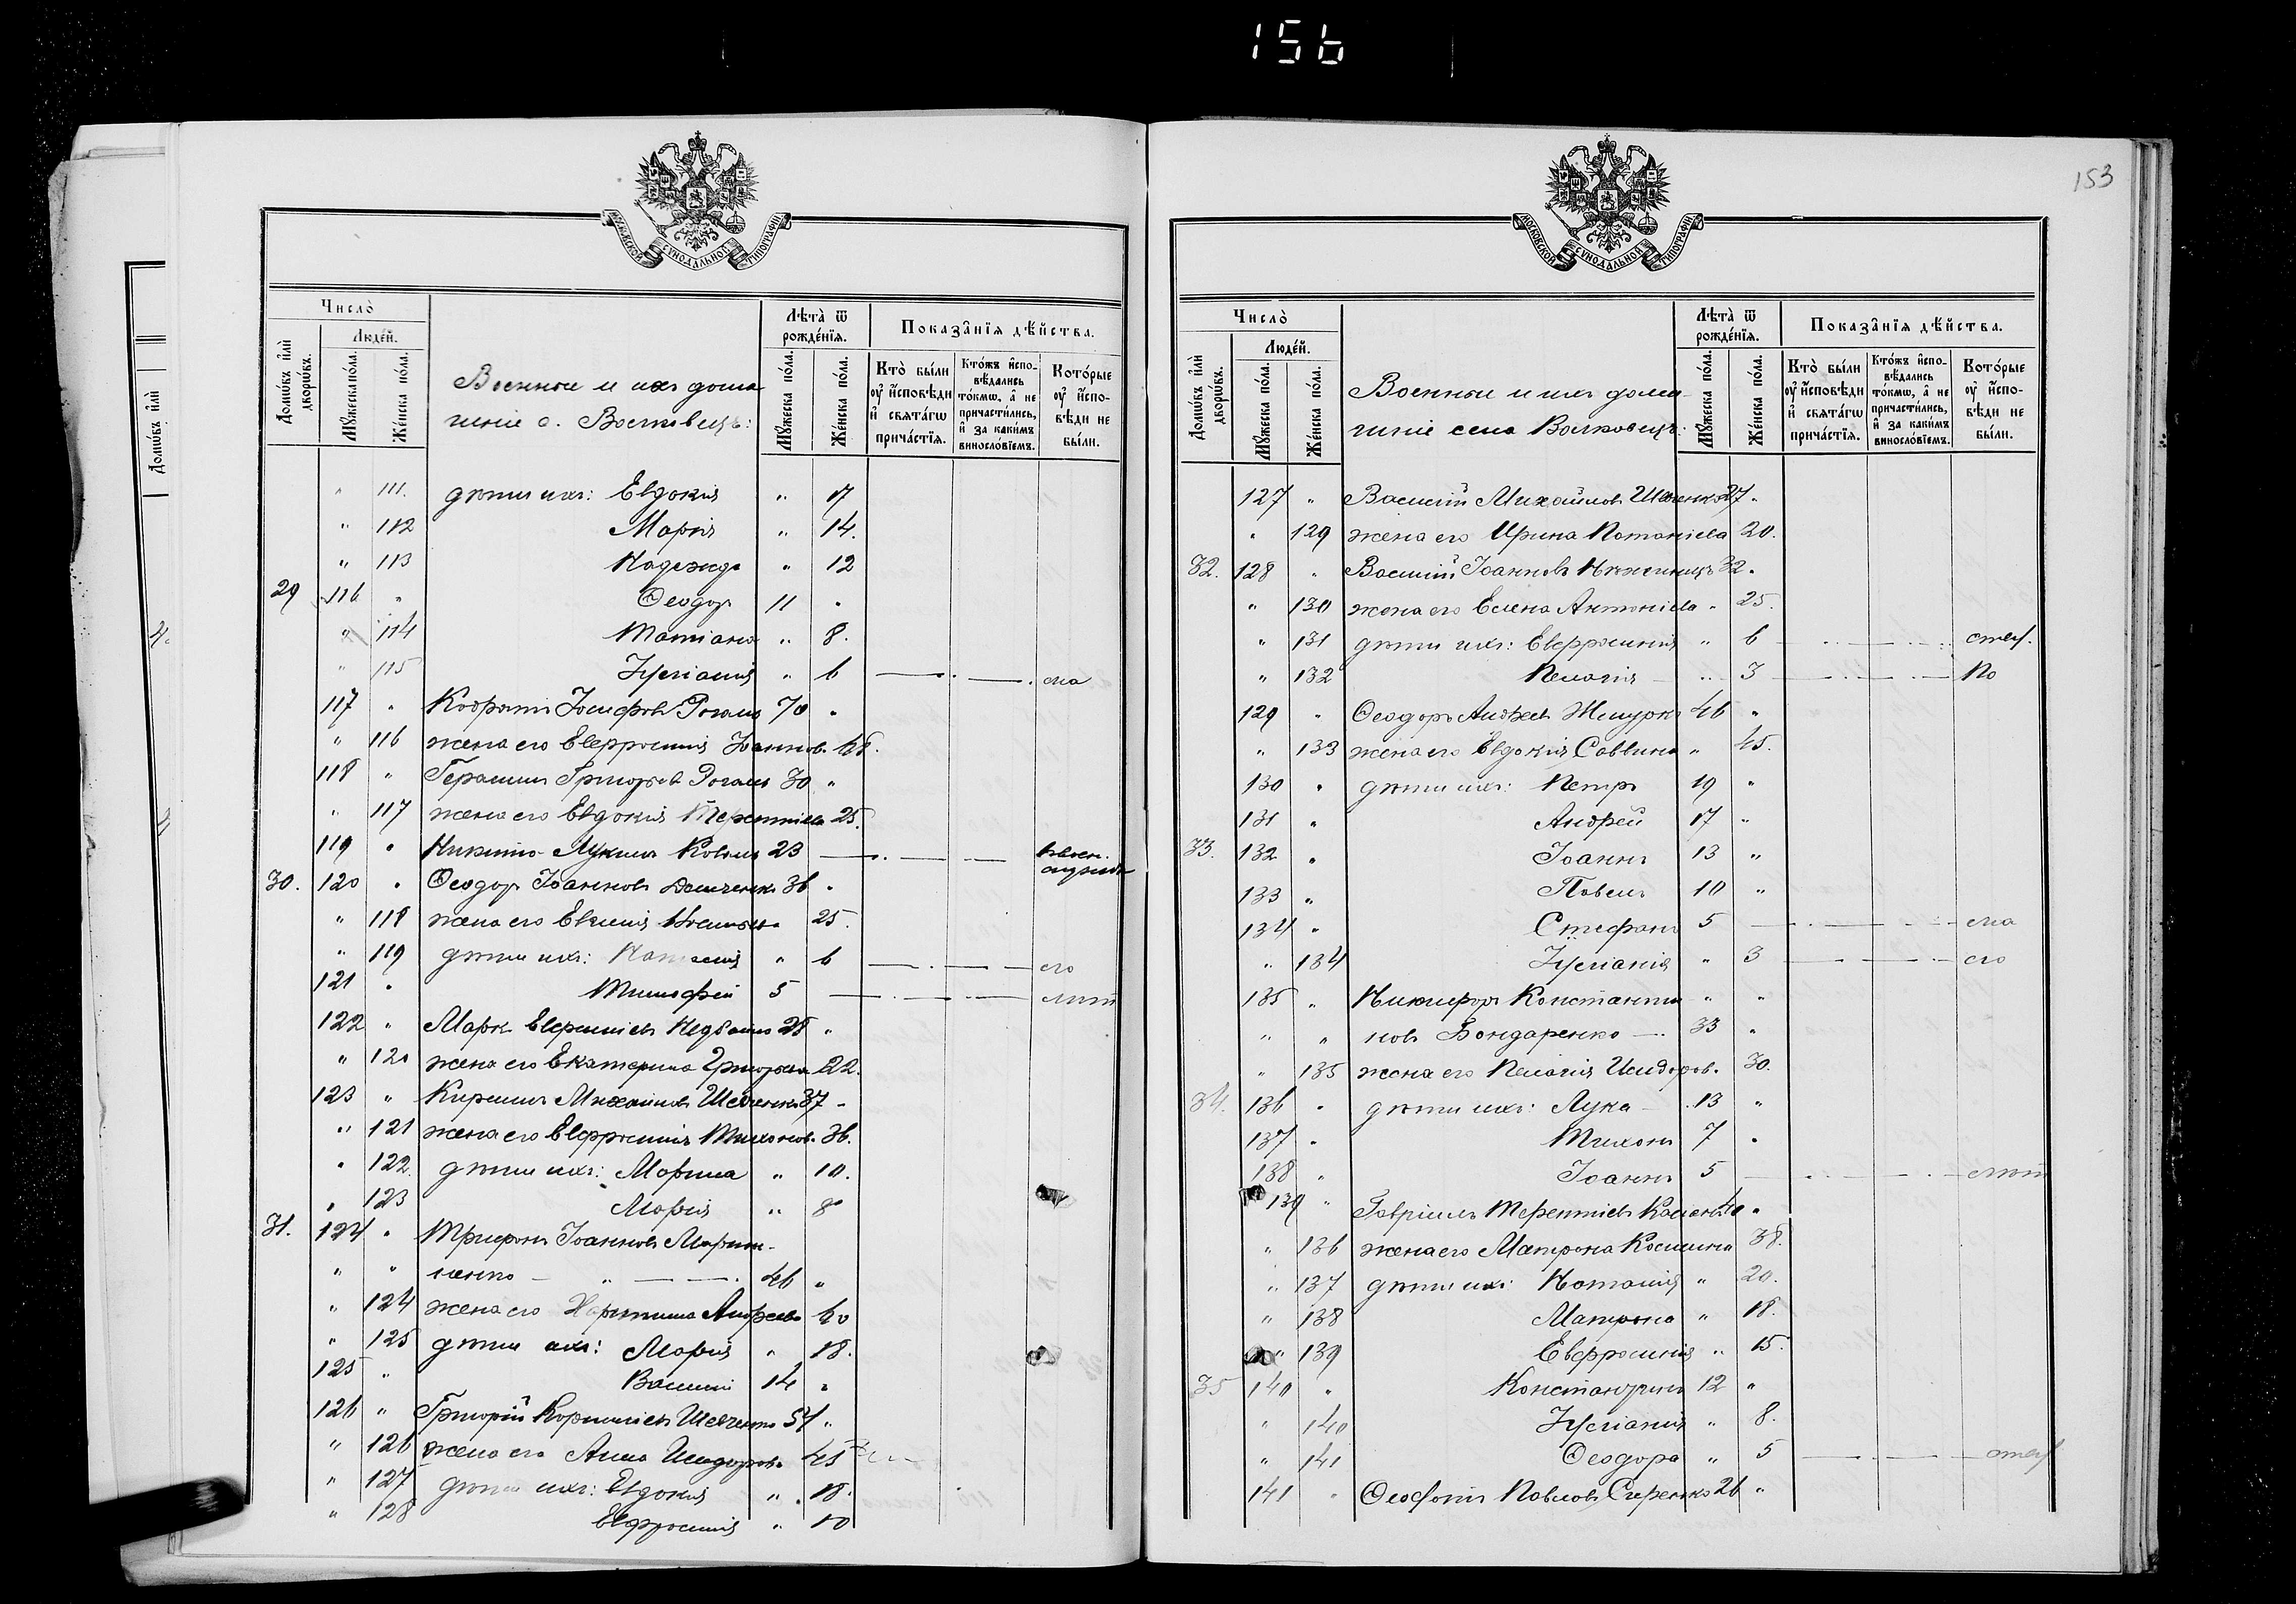 156
153
МОСКОВСКОЙ СѴНОДАЛЬНОЙ ТИПОГРАФІИ
Число̀
Люде́й.
Домѡ́въ и҆лѝ дворѡ́въ.
Мꙋ́жеска по́ла.
Же́нска по́ла.
Военные и ихъ дома
шніе с.
Лѣ́та ѿ рожде́нїѧ.
Мꙋ́жеска по́ла.
Же́нска по́ла.
Показа̑нїѧ дѣ́йства.
Кто̀ бы́ли ѹ҆ и҆́сповѣди и҆ свѧта́гѡ прича́стїѧ.
Кто́жъ и҆спо-вѣ́дались то́кмѡ, а҆ не причасти́лись, и҆ за каки́мъ виносло́вїемъ.
Кото́рые ѹ҆ и҆́спо-вѣди не бы́ли.
" 111. дѣти ихъ: Евдокія " 17
" 112 Марія " 14.
" 113 Надежда " 12
29 116 " Ѳеодор 11 "
" 114 Татіана " 8.
" 115 Іуліанія " 6 ма
117 " Кодратъ Іосифовъ Рогаль 70 "
" 116 жена его Евфросинія Іоаннов.
118 " Герасимъ Григорьев Рогаль 30 "
" 117 жена его Евдокія Терентіева 25.
119 " Никита Лукинъ Коваль 23
30. 120 " Ѳеодоръ Іоанновъ 36 "
" 118 жена его 25.
" 119 дѣти ихъ: Наталія " 6 ло
121 " Тимофей 5 лѣт
122 " Марк 28 "
" 120 жена его Екатерина Григорьева 22.
123 " Кириллъ Михайловъ Шевченко 37 "
" 121 жена его Евфросинія Тихонов. 36.
" 122 дѣти ихъ: Марина " 10.
" 123 Марія " 8
31. 124 " Трифонъ Іоанновъ Мартын-
" " ненко 46 "
" 124 жена его Харитина Андреева 40
" 125 дѣти ихъ: Марія " 18.
125 " Василій 14 "
126 " Григорій Корниліевъ Шевченко 54 "
" 126 жена его Анна Исидоров. 45
" 127 дѣти ихъ: Евдокія " 18.
" 128 Евфросинія " 10
Число̀
Люде́й.
Домѡ́въ и҆лѝ дворѡ́въ.
Мꙋ́жеска по́ла.
Же́нска по́ла.
Военные и ихъ дома-
шніе села Волковецъ:
Лѣ́та ѿ рожде́нїѧ.
Мꙋ́жеска по́ла.
Же́нска по́ла.
Показа̑нїѧ дѣ́йства.
Кто̀ бы́ли ѹ҆ и҆́сповѣди и҆ свѧта́гѡ прича́стїѧ.
Кто́жъ и҆спо-вѣ́дались то́кмѡ, а҆ не причасти́лись, и҆ за каки́мъ виносло́вїемъ.
Кото́рые ѹ҆ и҆́спо-вѣди не бы́ли.
127 " Василій Михайловъ Шевченко 27 "
" 129 жена его Ирина Потапіева 20.
32. 128 " Василій Іоанновъ 32 "
" 130 жена его Елена Антоніева " 25.
" 131 дѣти ихъ: Евфросинія " 6
" 132 Пелагія " 3 По
129 " Ѳеодоръ Андреевъ 46 "
" 133 жена его Евдокія Саввина " 45.
130 " дѣти ихъ: Петръ 19 "
131 " Андрей 17 "
33. 132 " Іоаннъ 13 "
133 " Павелъ 10 "
134 " Стефанъ 5 ма
" 134 Іуліанія " 3 ло
135 " Никифоръ Константи " "
" " новъ Бондаренко 33 "
" 135 жена его Пелагія Исидоров. 30.
34. 136 " дѣти ихъ: Лука 13 "
137 " Тихонъ 7 "
138 " Іоаннъ 5 лѣт
139 " Гавріилъ Терентіевъ "
" 136 жена его Матрона Космина 38.
" 137 дѣти ихъ: Наталія " 20.
" 138 Матрона " 18.
" 139 Евфросинія " 15.
35 140 " Константинъ 12 "
" 140 Іуліанія " 8.
" 141 Ѳеодора " 5
141 " Павловъ 26 "